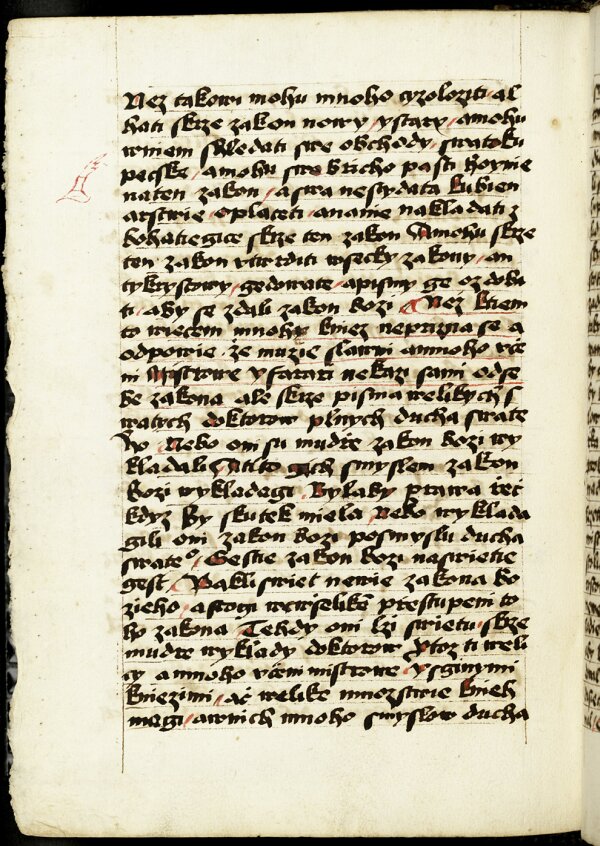 Nez takowi mohu mnoho cyzoloziti al
hati skrze zakon nowy / ystary / amohu
wniem shledati swe obchody / swatoku
pecske / amohu swe bricho pasti hoynie
naten zakon / aswa nestydata kubien
arstwie oplaceti aname nakladati z
bohatiegice skrze ten zakon Amohu skrze
ten zakon vtwrditi wsecky zakony / an
tykrystowy / gedowate / apismy ge ozdobi
ti / aby se zdali zakon bozi Nez kniem
to wiecem mnohy kniez neprizna se a
odpowie ze muzie slawni amnoho vče
ni Mistrowe yfarari nekazi sami odse
be zakona ale skrze pisma welikych s
watych doktorow plnych ducha swate
ho Nebo oni su mudře zakon bozi wy
kladali Ati to gich smyslem zakon
bozi wykladegi Bylaby prawa řeč
kdyz by skutek miela Nebo wyklada
gili oni zakon bozi posmyslu ducha
swateº Gestie zakon bozi naswietie
gest / Pakli swiet newie zakona bo
zieho / astogi wewselikem přestupeni to
ho zakona Tehdy oni lzi swietu skrze
mudre wyklady doktorow Ytoz ti weli
cy amnoho včeni mistrowe / ysginymi
kniezimi / ač welike mnozstwie knieh
magi / awnich mnoho smyslow ducha